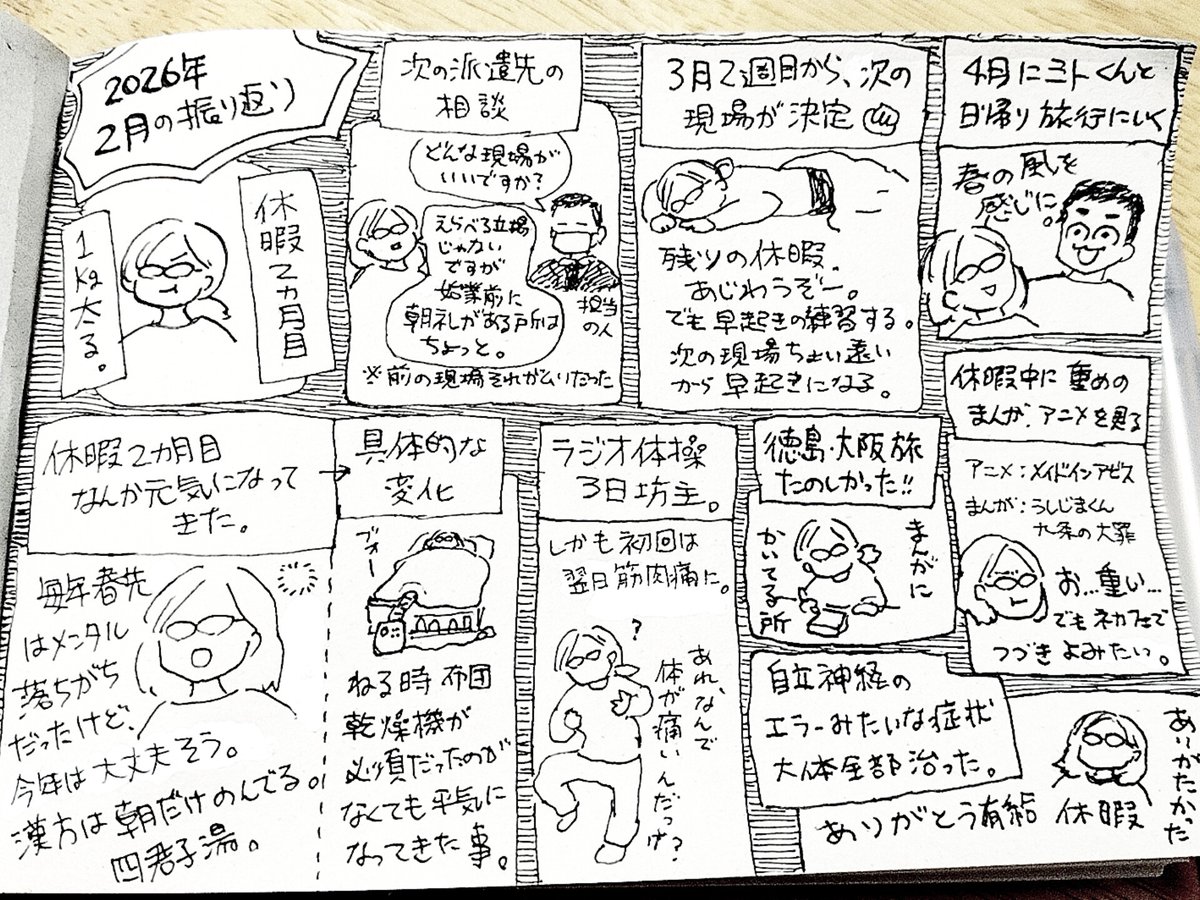 2026年
2月の振り返り
休暇2ヵ月目
1kg太る。
次の派遣先の
相談
どんな現場が
いいですか?
えらべる立場
じゃない
ですが
始業前に
朝礼がある所は
ちょっと。
担当
の人
※前の現場それがといだった
3月2週目から、次の
現場が決定
残りの休暇、
あじわうぞー。
でも早起きの練習する。
次の現場ちょい遠い
から早起きになる。
4月にヨトくんと
日帰り旅行にいく
春の風を
感じに。
休暇中に重めの
まんが、アニメを見る
アニメ:メイドインアビス
まんが:うしじまくん
九条の大罪
お…重い…
でもネカフェで
つづきよみたい。
休暇2ヵ月目
なんか元気になって
きた。
毎年春先
はメンタル
落ちがち
だったけど、
今年は大丈夫そう。
漢方は朝だけのんでる。
四君子湯。
具体的な
変化
ブォー
ねる時布団
乾燥機が
必須だったのが
なくても平気に
なってきた事。
ラジオ体操
3日坊主。
しかも初回は
翌日筋肉痛に。
?
あれ、なんで
体が痛いんだっけ?
徳島・大阪旅
たのしかった!!
まんがに
かいてる所
自立神経の
エラーみたいな症状
大体全部治った。
ありがとう有給休暇
ありがたかった